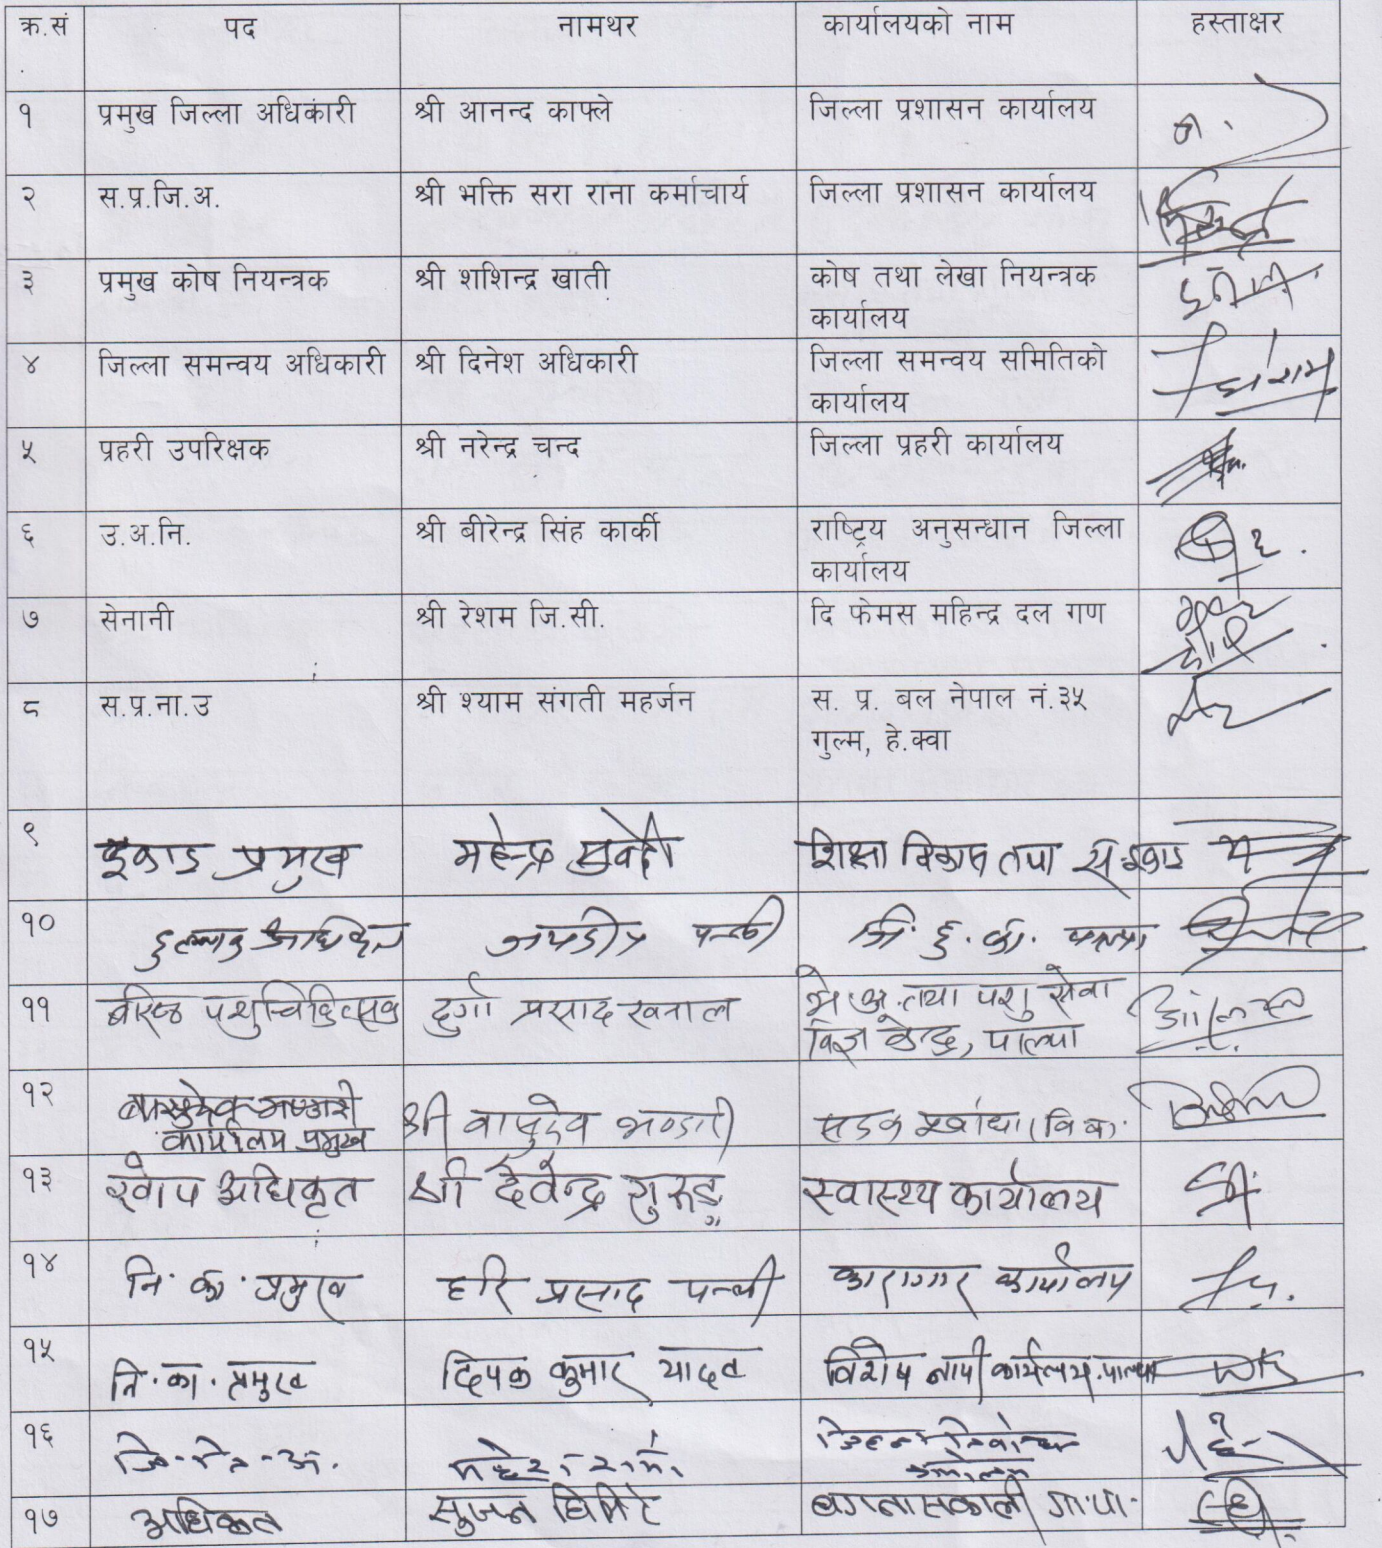 क्र.सं पद नामथर कार्यालयको नाम हस्ताक्षर
१ प्रमुख जिल्ला अधिकारी श्री आनन्द काफ्ले जिल्ला प्रशासन कार्यालय
२ स.प्र.जि.अ. श्री भक्ति सरा राना कर्माचार्य जिल्ला प्रशासन कार्यालय
३ प्रमुख कोष नियन्त्रक श्री शशिन्द्र खाती कोष तथा लेखा नियन्त्रक
कार्यालय
४ जिल्ला समन्वय अधिकारी श्री दिनेश अधिकारी जिल्ला समन्वय समितिको
कार्यालय
५ प्रहरी उपरिक्षक श्री नरेन्द्र चन्द जिल्ला प्रहरी कार्यालय
६ उ.अ.नि. श्री बीरेन्द्र सिंह कार्की राष्ट्रिय अनुसन्धान जिल्ला
कार्यालय
७ सेनानी श्री रेशम जि.सी. दि फेमस महिन्द्र दल गण
८ स.प्र.ना.उ श्री श्याम संगती महर्जन स. प्र. बल नेपाल नं.३५
गुल्म, हे.क्वा
९ इकाइ प्रमुख महेन्द्र सुवेदी शिक्षा विकास तथा
१० हुलाक पन्थी जि. हु. का. पाल्पा
११ वरिष्ठ पशुचिकित्सक दुर्गा प्रसाद खनाल भे.अ. तथा पशु सेवा
विज्ञ केन्द्र, पाल्पा
१२ बासुदेव भण्डारी श्री वासुदेव भण्डारी सडक
कार्यालय प्रमुख
१३ खोप अधिकृत श्री देवेन्द्र गुरुङ्ग स्वास्थ्य कार्यालय
१४ नि. का. प्रमुख हरि प्रसाद पन्थी कारागार कार्यालय
१५ नि. का. प्रमुख दिपक कुमार यादव विशेष नापी कार्यलय, पाल्पा
१६ जि. नि. अ. जिल्ला निर्वाचन
कार्यालय
१७ अधिकृत सुजन घिमिरे बगनासकाली गा.पा.